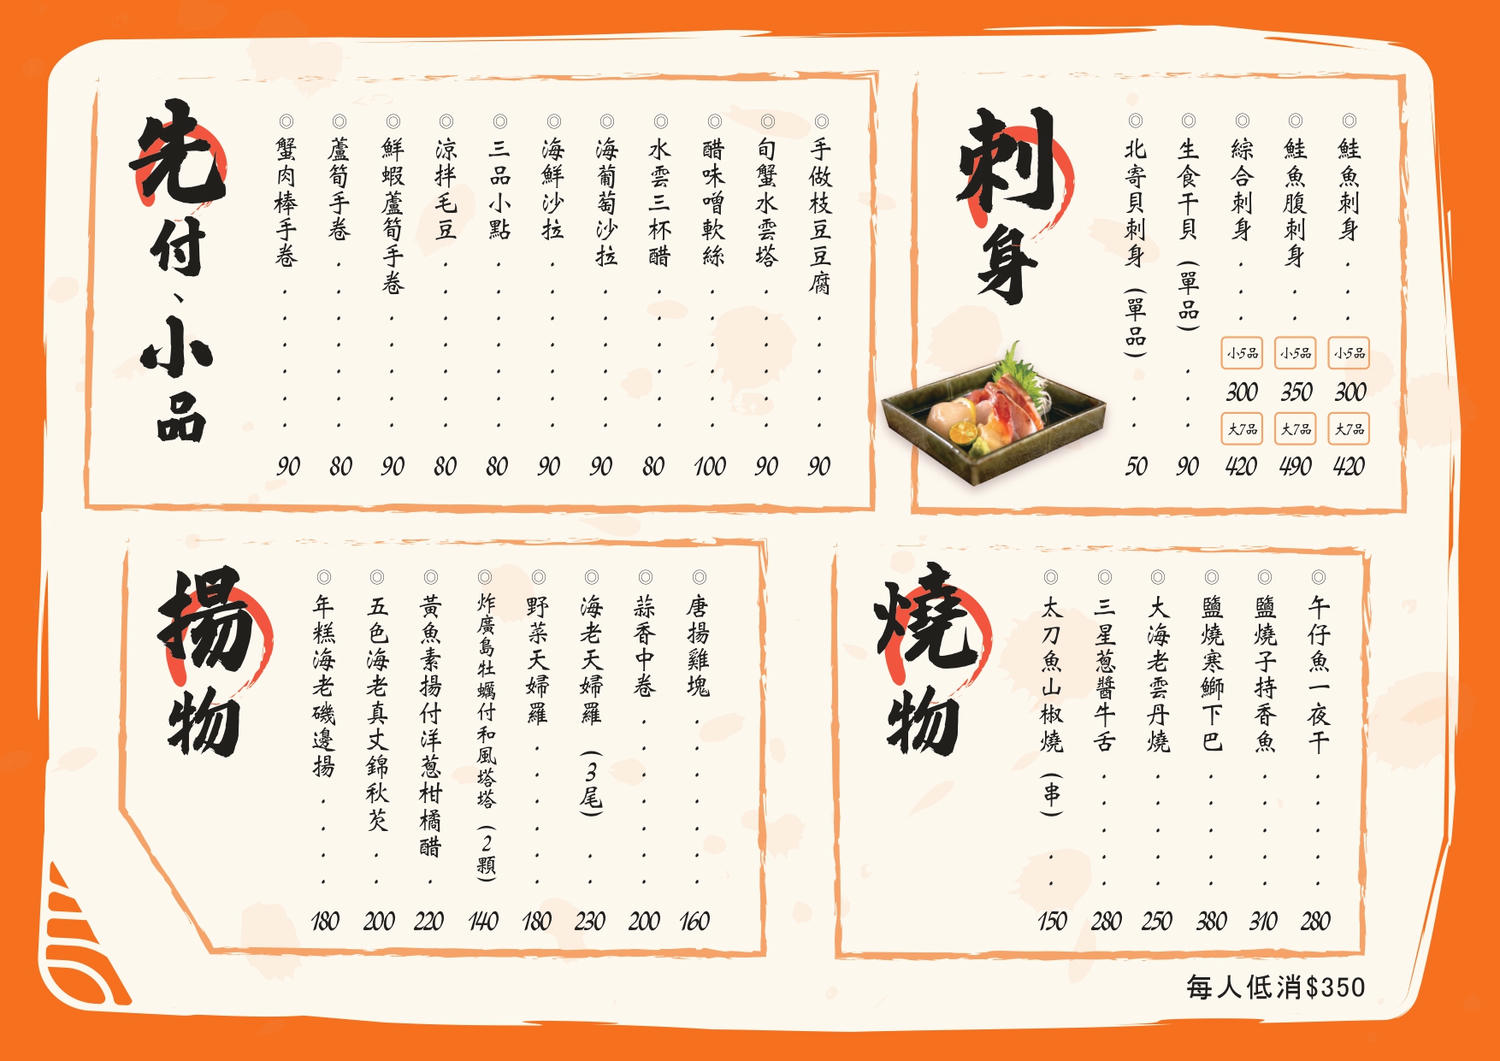 刺身
◎鮭魚刺身...小5品 300 大7品 420
◎鮭魚腹刺身..小5品 350 大7品 490
◎綜合刺身...小5品 300 大7品 420
◎生食干貝(單品)...90
◎北寄貝刺身(單品)..50
先付、小品
◎手做枝豆豆腐.....90
◎旬蟹水雲塔......90
◎醋味噌軟絲......100
◎水雲三杯醋......80
◎海葡萄沙拉......90
◎海鮮沙拉.......90
◎三品小點.......80
◎涼拌毛豆.......80
◎鮮蝦蘆筍手卷.....90
◎蘆筍手卷.......80
◎蟹肉棒手卷......90
燒物
◎午仔魚一夜干.....280
◎鹽燒子持香魚.....310
◎鹽燒寒鰤下巴.....380
◎大海老雲丹燒.....250
◎三星蔥醬牛舌.....280
◎太刀魚山椒燒(串)..150
揚物
◎唐揚雞塊.......160
◎蒜香中卷.......200
◎海老天婦羅(3尾)..230
◎野菜天婦羅......180
◎炸廣島牡蠣付和風塔塔(2顆)140
◎黃魚素揚付洋蔥柑橘醋.220
◎五色海老真丈錦秋芡..200
◎年糕海老磯邊揚....180
每人低消$350